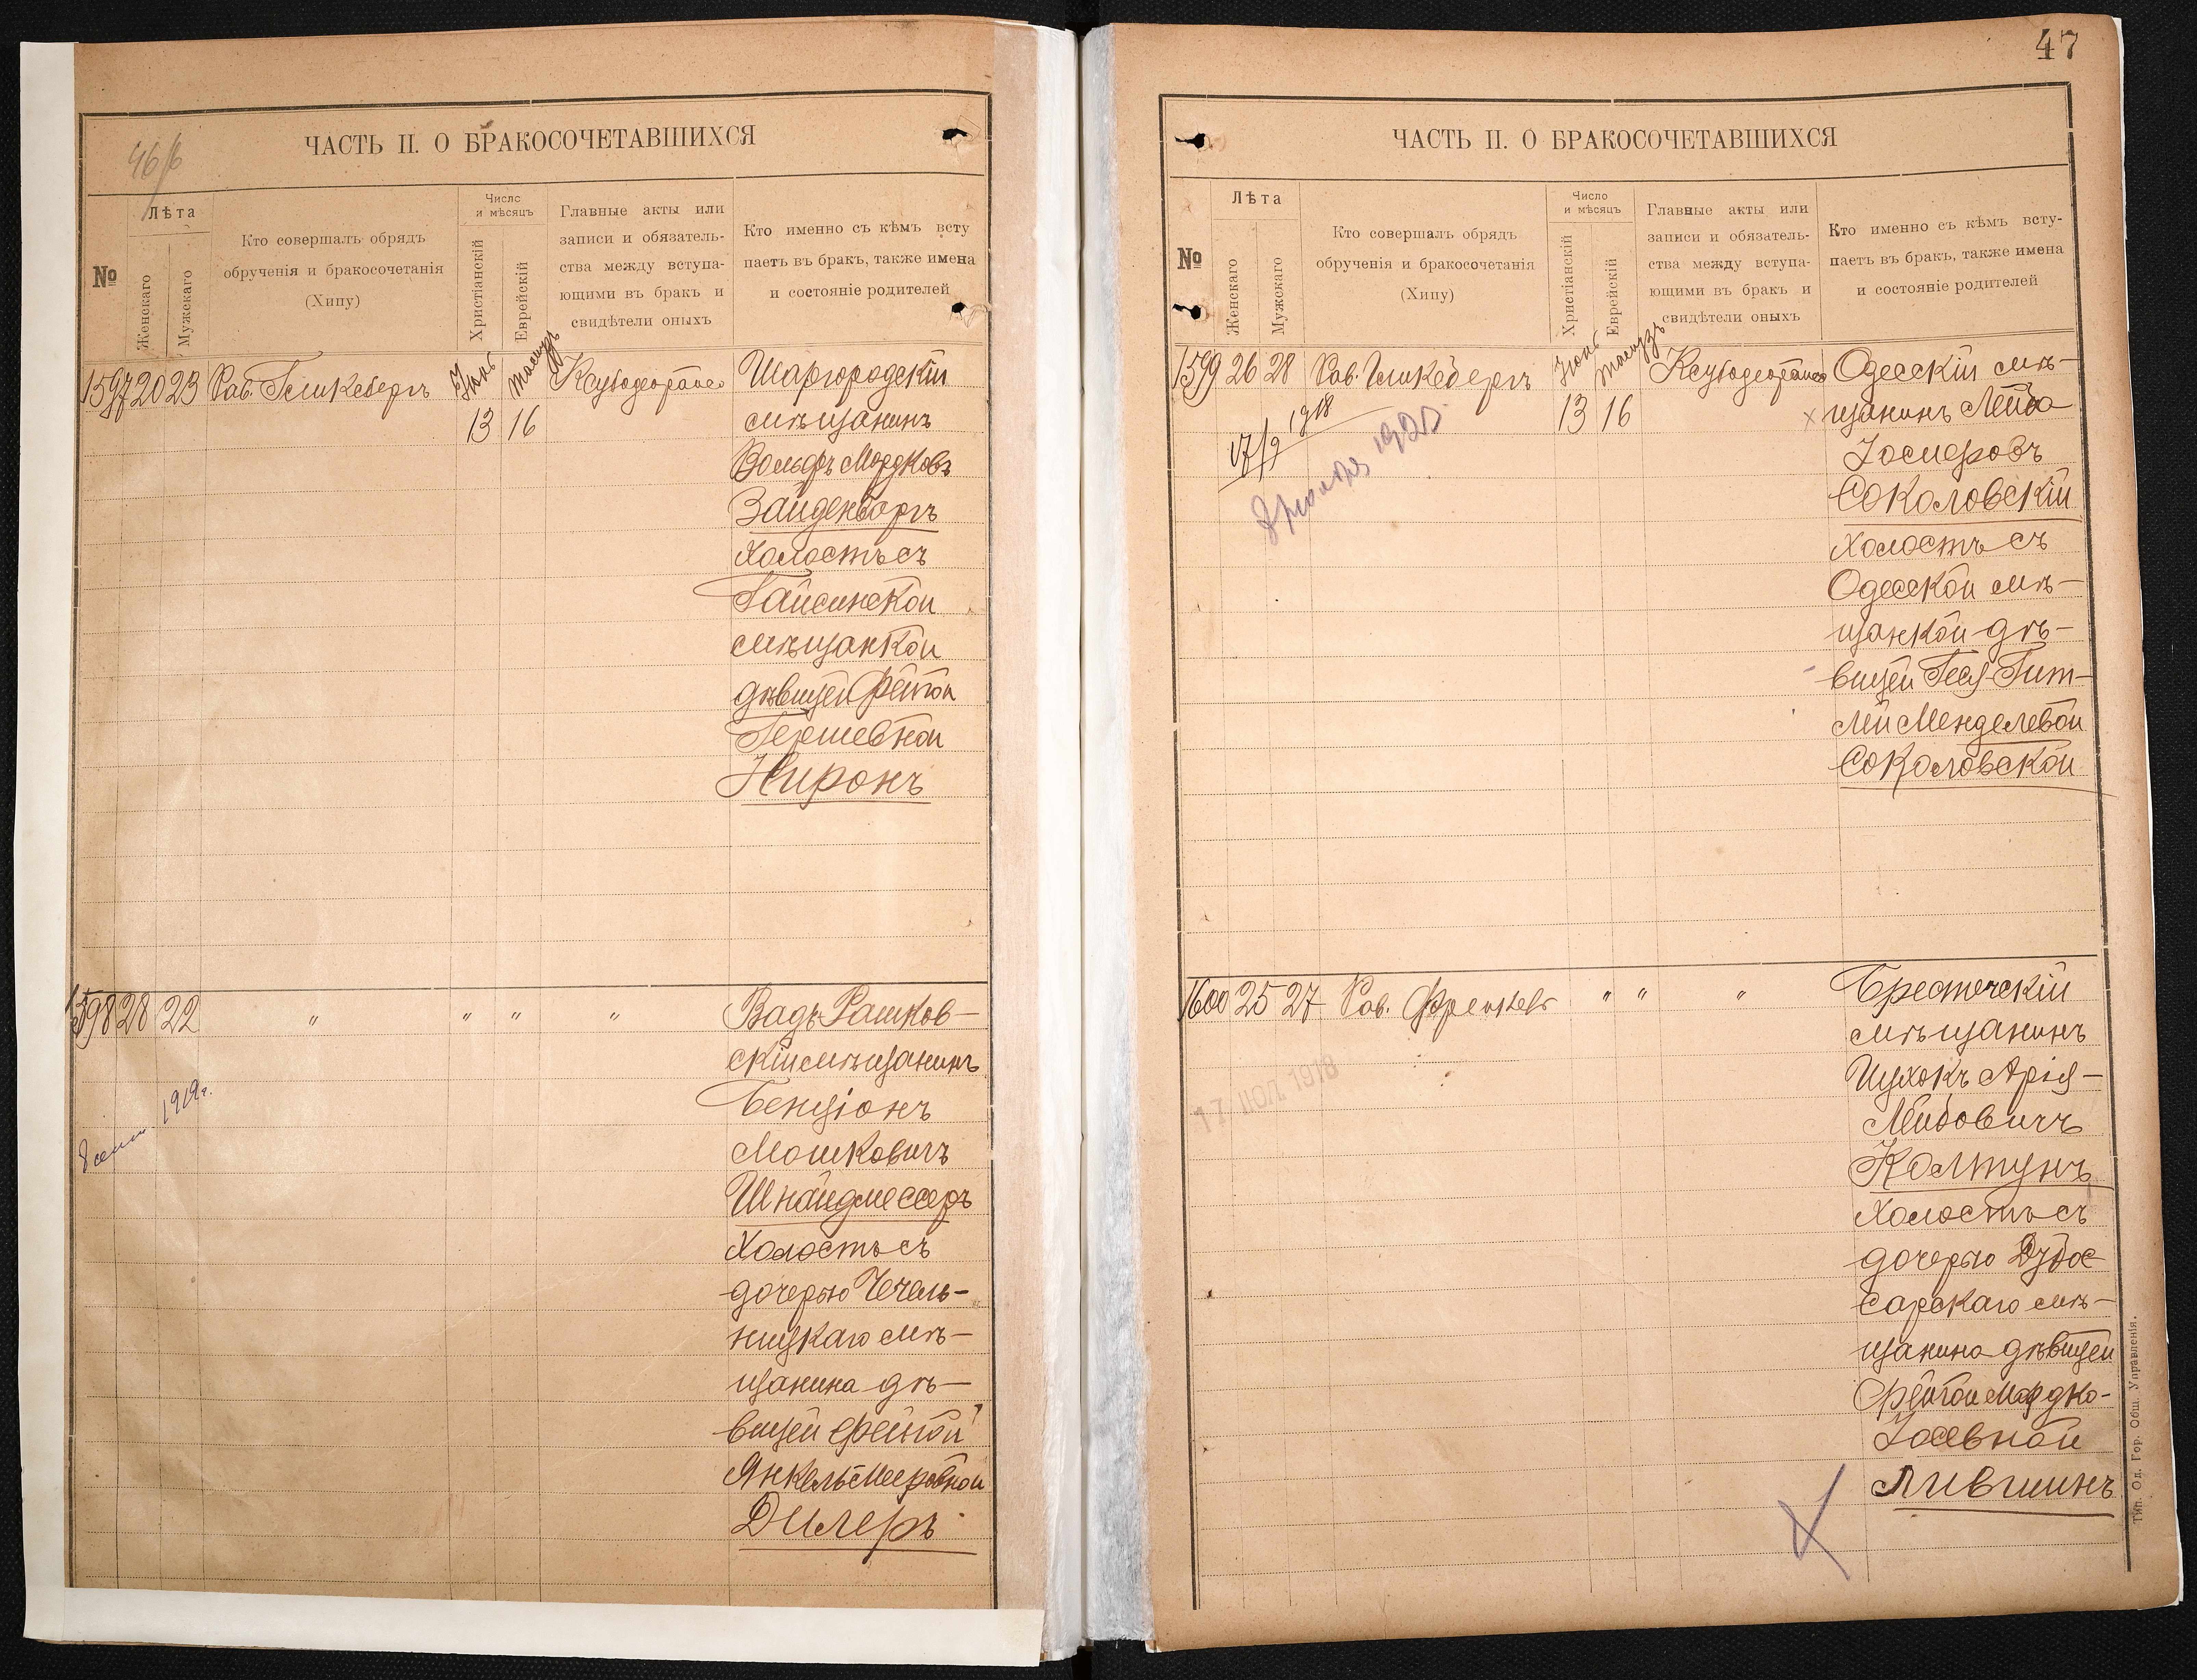 46/б
ЧАСТЬ II. О БРАКОСОЧЕТАВШИХСЯ
№
Лѣта
Женскаго
Мужскаго
Кто совершалъ обрядъ
обрученія и бракосочетанія
(Хипу)
Число
и мѣсяцъ
Христіанскій
Еврейскій
Главные акты или
записи и обязатель-
ства между вступа-
ющими въ бракъ и
свидѣтели оныхъ
Кто именно съ кѣмъ всту
паетъ въ бракъ, также имена
и состояніе родителей
1597 20 23 Рав. Гликсбергъ Іюнь Тамузъ Шаргородскій
13 16 мѣщанинъ
Вольфъ Мордковъ
Зайденборгъ
холостъ съ
Гайсинской
мѣщанкой
дѣвицей Фейгой
Гершевной
Ниронъ
1598 28 22 " " " " Вадъ-Рашков-
скій мѣщанинъ
Бенціонъ
Мошковичъ
Шнайдмессеръ
холостъ съ
дочерью Чечель-
ницкаго мѣ-
щанина дѣ-
вицей Фейгой
Янкель-Мееровной
Дилеръ
8 сент. 1919г.
47
ЧАСТЬ II. О БРАКОСОЧЕТАВШИХСЯ
№
Лѣта
Женскаго
Мужскаго
Кто совершалъ обрядъ
обрученія и бракосочетанія
(Хипу)
Число
и мѣсяцъ
Христіанскій
Еврейскій
Главные акты или
записи и обязатель-
ства между вступа-
ющими въ бракъ и
свидѣтели оныхъ
Кто именно съ кѣмъ всту-
паетъ въ бракъ, также имена
и состояніе родителей
1599 26 28 Рав. Гликсбергъ Іюнь Тамузъ Одесскій мѣ-
13 16 щанинъ Лейба
Іосифовъ
Соколовскій
холостъ съ
Одесской мѣ-
щанкой дѣ-
вицей Геся-Гит-
лей Менделевой
Соколовской
17/9 1918
1920
1600 25 27 Рав. Френкель " " " Брестечскій
мѣщанинъ
Ицхокъ Арія-
Лейбовичъ
Колтунъ
холостъ съ
дочерью Дубос
сарскаго мѣ-
щанина дѣвицей
Фейгой Мордко-
Іосевной
Лившинъ
17 ИЮЛ 1918
Тип. Од. Гор. Общ. Управленія.